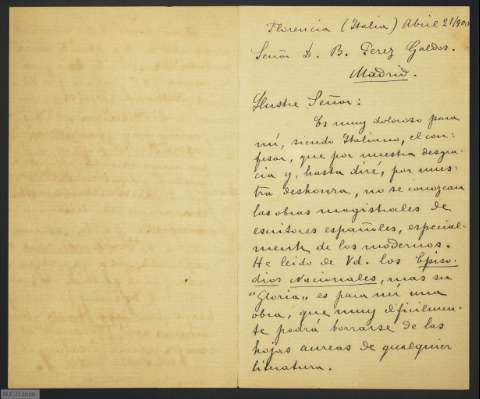 Florencia (Italia) Abril 21/901
Señor D. B. Perez Galdos.
Madrid.
Ilustre Señor:
Es muy doloroso para
mí, siendo Italiano, el con-
fesar, que por nuestra desgra-
cia y, hasta diré, por nues-
tra deshonra, no se conozcan
las obras magistrales de
escritores españoles, especial-
mente de los modernos.
He leido de Vd. los Episo-
dios Nacionales, mas su
"Gloria" es para mí una
obra, que muy dificilmen-
te podrá borrarse de las
hojas aureas de cualquier
literatura.